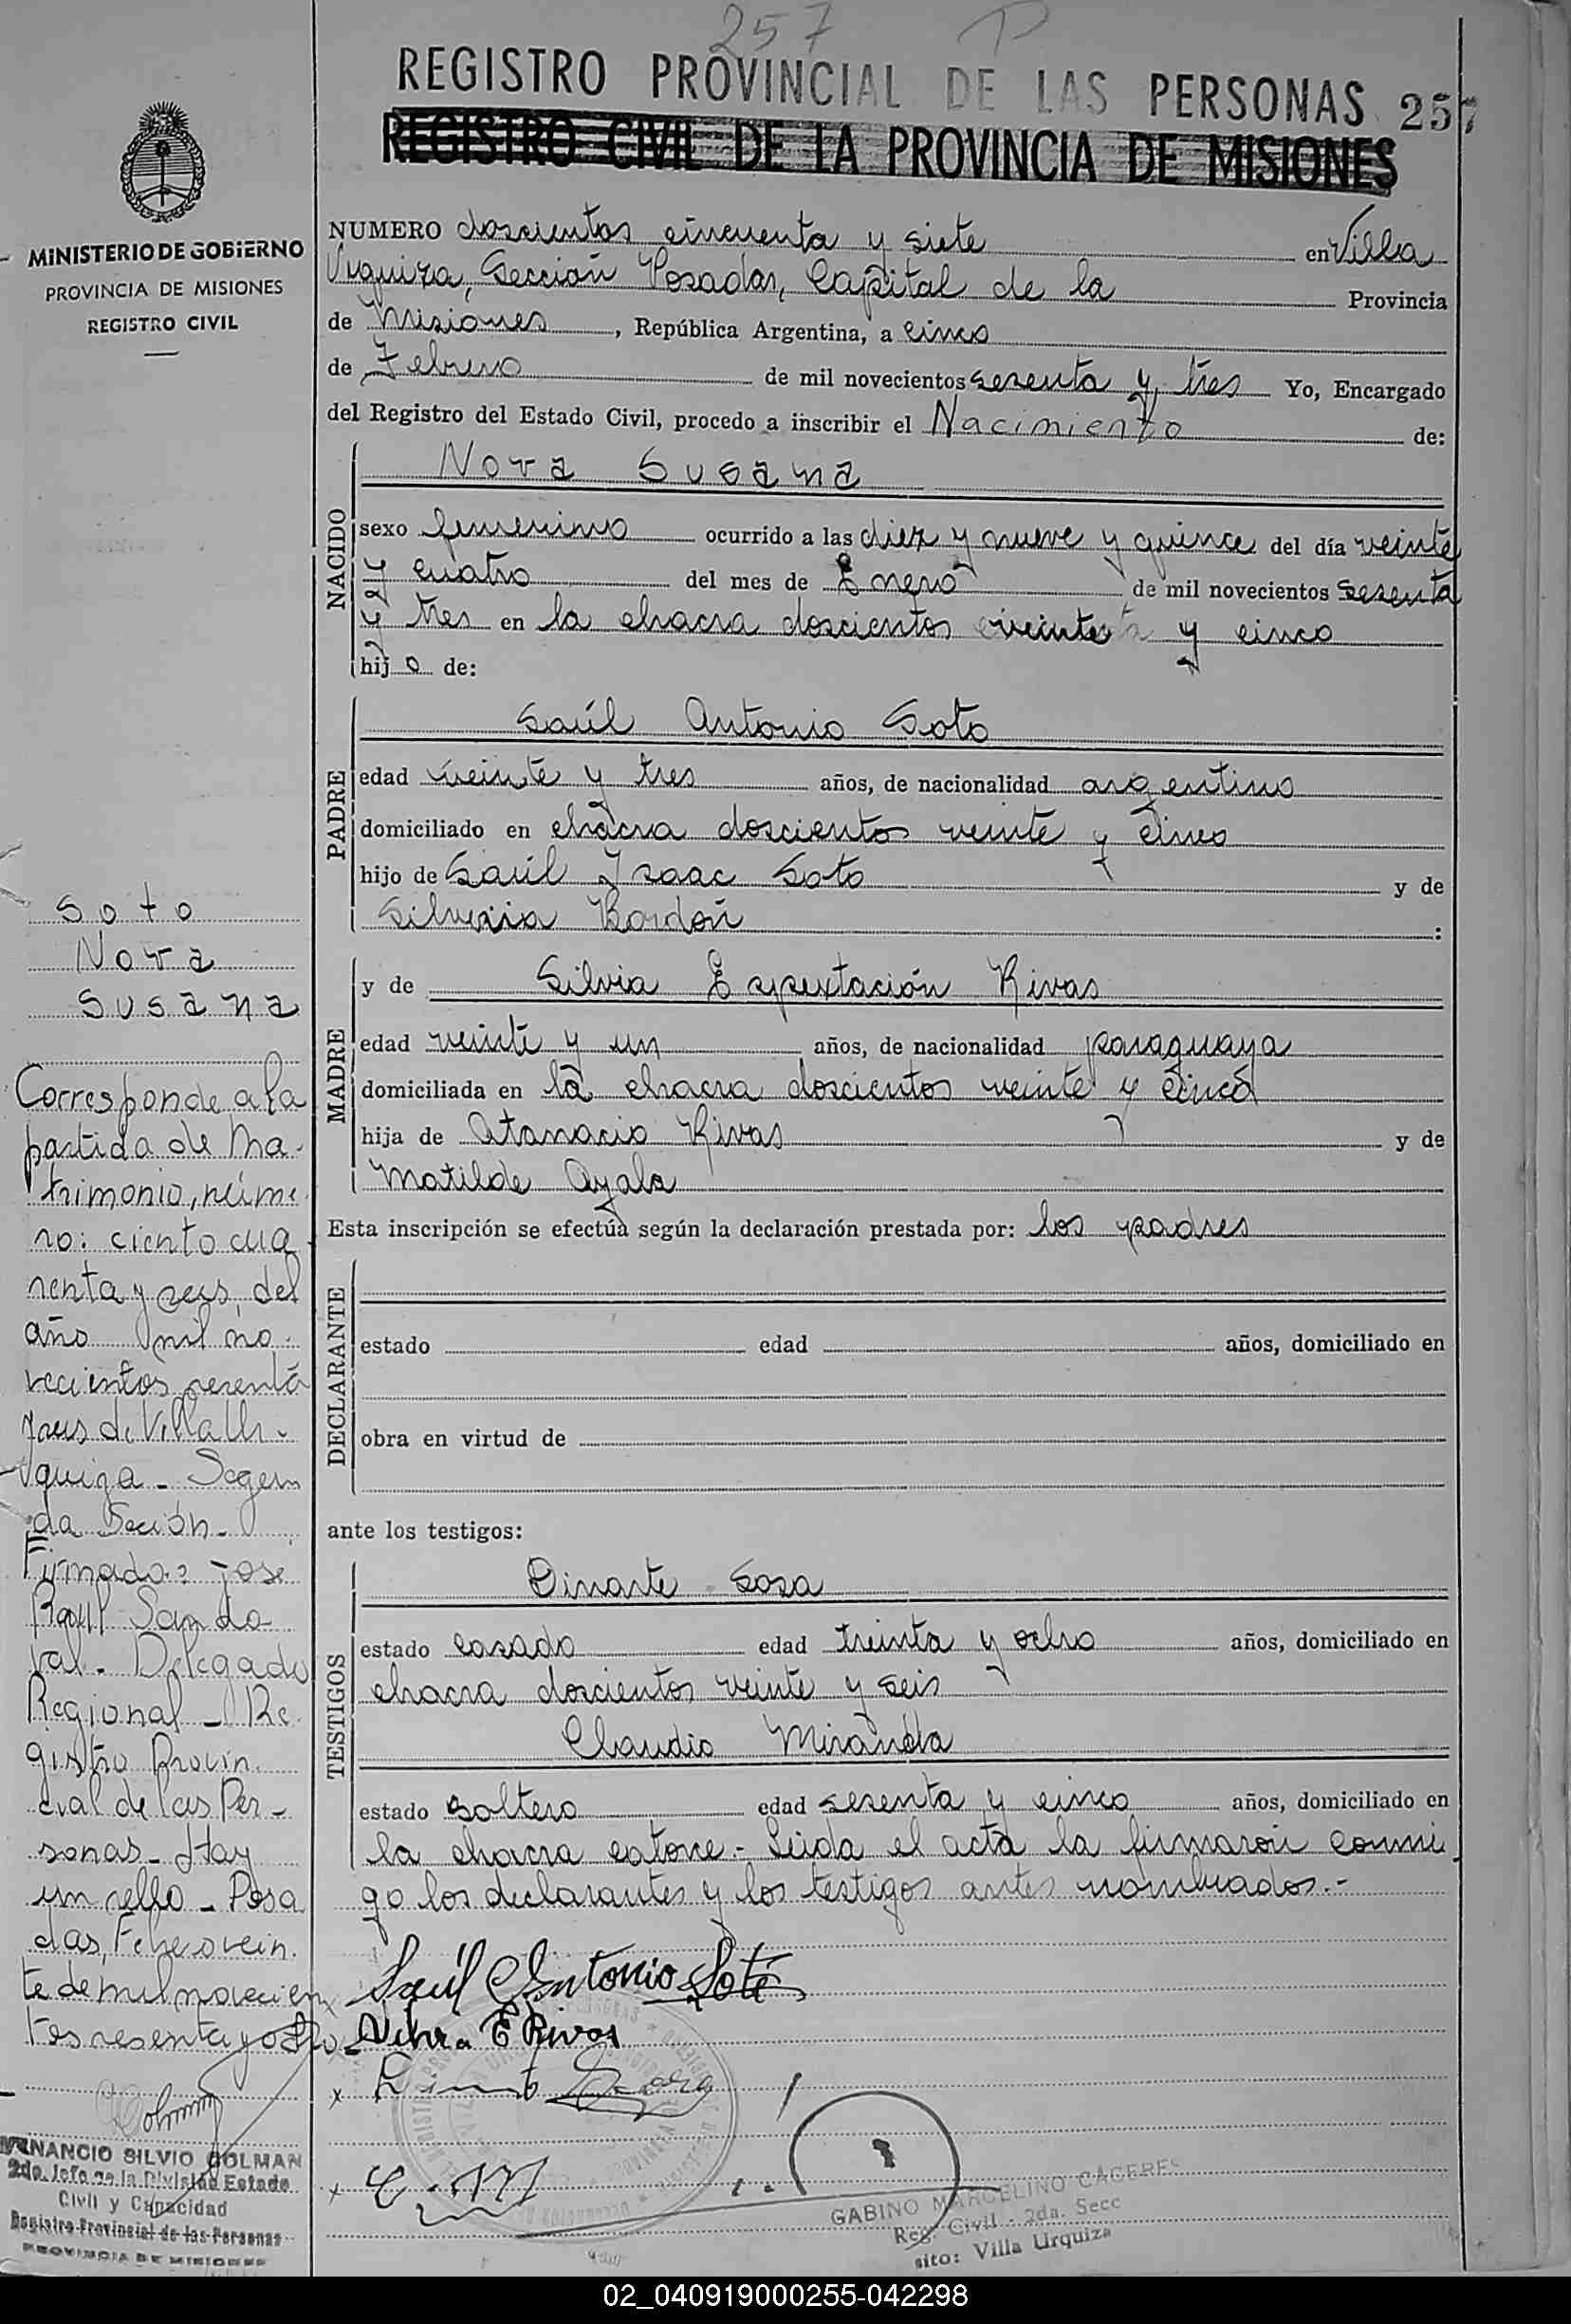 257
REGISTRO PROVINCIAL DE LAS PERSONAS 257
REGISTRO CIVIL DE LA PROVINCIA DE MISIONES
MINISTERIO DE GOBIERNO
PROVINCIA DE MISIONES
REGISTRO CIVIL
NUMERO doscientos cincuenta y siete en Villa
Urquiza, Sección Posadas, Capital de la Provincia
de Misiones, República Argentina, a cinco
de Febrero de mil novecientos sesenta y tres Yo, Encargado
del Registro del Estado Civil, procedo a inscribir el Nacimiento de:
NACIDO
Nora Susana
sexo femenino ocurrido a las diez y nueve y quince del día veinte
y cuatro del mes de Enero de mil novecientos sesenta
y tres en la chacra doscientos veinte y cinco
hija de:
PADRE
Saúl Antonio Soto
edad veinte y tres años, de nacionalidad argentino
domiciliado en chacra doscientos veinte y cinco
hijo de Saúl Isaac Soto y de
Silveria Bordón :
MADRE
y de Silvia Expextación Rivas
edad veinte y un años, de nacionalidad paraguaya
domiciliada en la chacra doscientos veinte y cinco
hija de Atanacio Rivas y de
Matilde Ayala
Esta inscripción se efectúa según la declaración prestada por: los padres
DECLARANTE
estado edad años, domiciliado en
obra en virtud de
ante los testigos:
TESTIGOS
Dinarte Sosa
estado casado edad treinta y ocho años, domiciliado en
chacra doscientos veinte y seis
Claudio Miranda
estado soltero edad sesenta y cinco años, domiciliado en
la chacra catorce.- Leida el acta la firmarón conmi
go los declarantes y los testigos antes nombrados.-
Saúl Antonio Soto
E Rivas
x
x C. M
GABINO MARCELINO CACERES
Reg. Civil - 2da. Secc
sito: Villa Urquiza
Soto
Nora
Susana
Corresponde a la
partida de Ma-
trimonio, núme
ro: ciento cua
renta y seis, del
año mil no-
vecientos sesenta
y seis de Villa Ur-
quiza - Segun
da Sección.
Firmado: José
Raúl Sando
val - Delegado
Regional - Re
gistro Provin
cial de las Per-
sonas - Hay
un sello - Posa
das, Febrero vein
te de mil novecien
tos sesenta y ocho-
VENANCIO SILVIO COLMAN
2do. Jefe de la División Estado
Civil y Capacidad
Registro Provincial de las Personas
PROVINCIA DE MISIONES
02_040919000255-042298